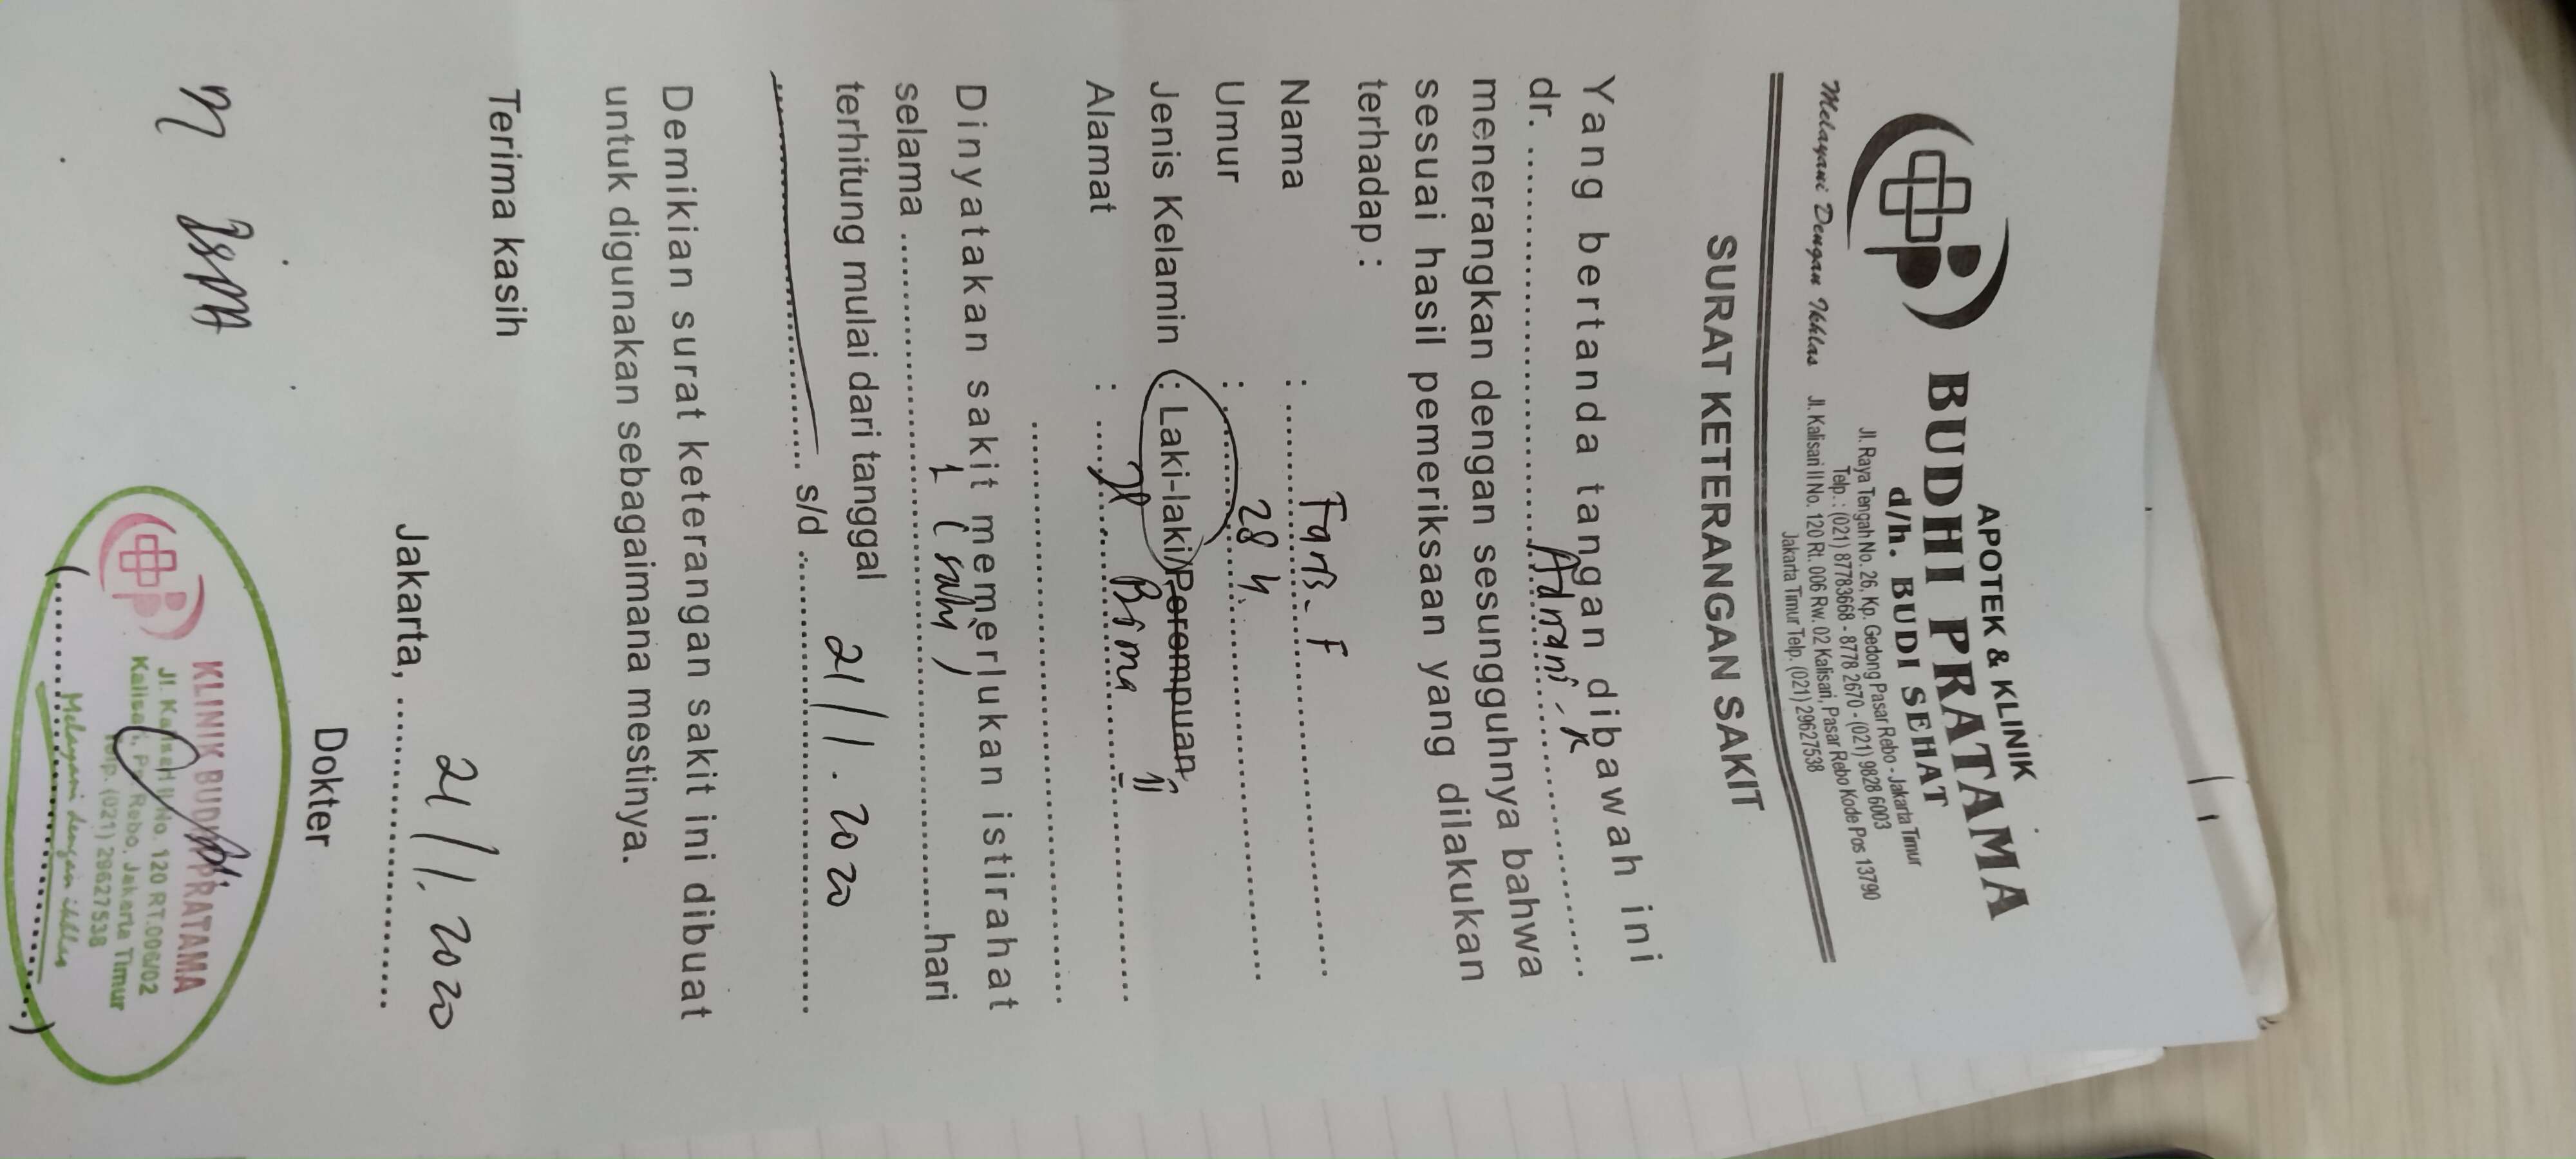 APOTEK & KLINIK
BUDHI PRATAMA
d/h. BUDI SEHAT
Jl. Raya Tengah No. 26, Kp. Gedong Pasar Rebo - Jakarta Timur
Telp.: (021) 87783668 - 8778 2670 - (021) 9828 6003
Melayani Dengan Ikhlas
Jl. Kalisari II No. 120 Rt. 006 Rw. 02 Kalisari, Pasar Rebo Kode Pos 13790
Jakarta Timur Telp. (021) 29627538
SURAT KETERANGAN SAKIT
Yang bertanda tangan dibawah ini
dr. Adnani. K
menerangkan dengan sesungguhnya bahwa
sesuai hasil pemeriksaan yang dilakukan
terhadap :
Nama :
Umur : 28
Jenis Kelamin : Laki-laki/Perempuan
Alamat : Jl. Bima II
Dinyatakan sakit memerlukan istirahat
selama 1 (satu) hari
terhitung mulai dari tanggal
s/d 21/1.2020
Demikian surat keterangan sakit ini dibuat
untuk digunakan sebagaimana mestinya.
Terima kasih
Jakarta, 21/1.2020
Dokter
KLINIK BUDHI PRATAMA
Jl. Kalisari II No. 120 RT.006/02
Kalisari, Ps. Rebo, Jakarta Timur
Telp. (021) 29627538
Melayani dengan ikhlas